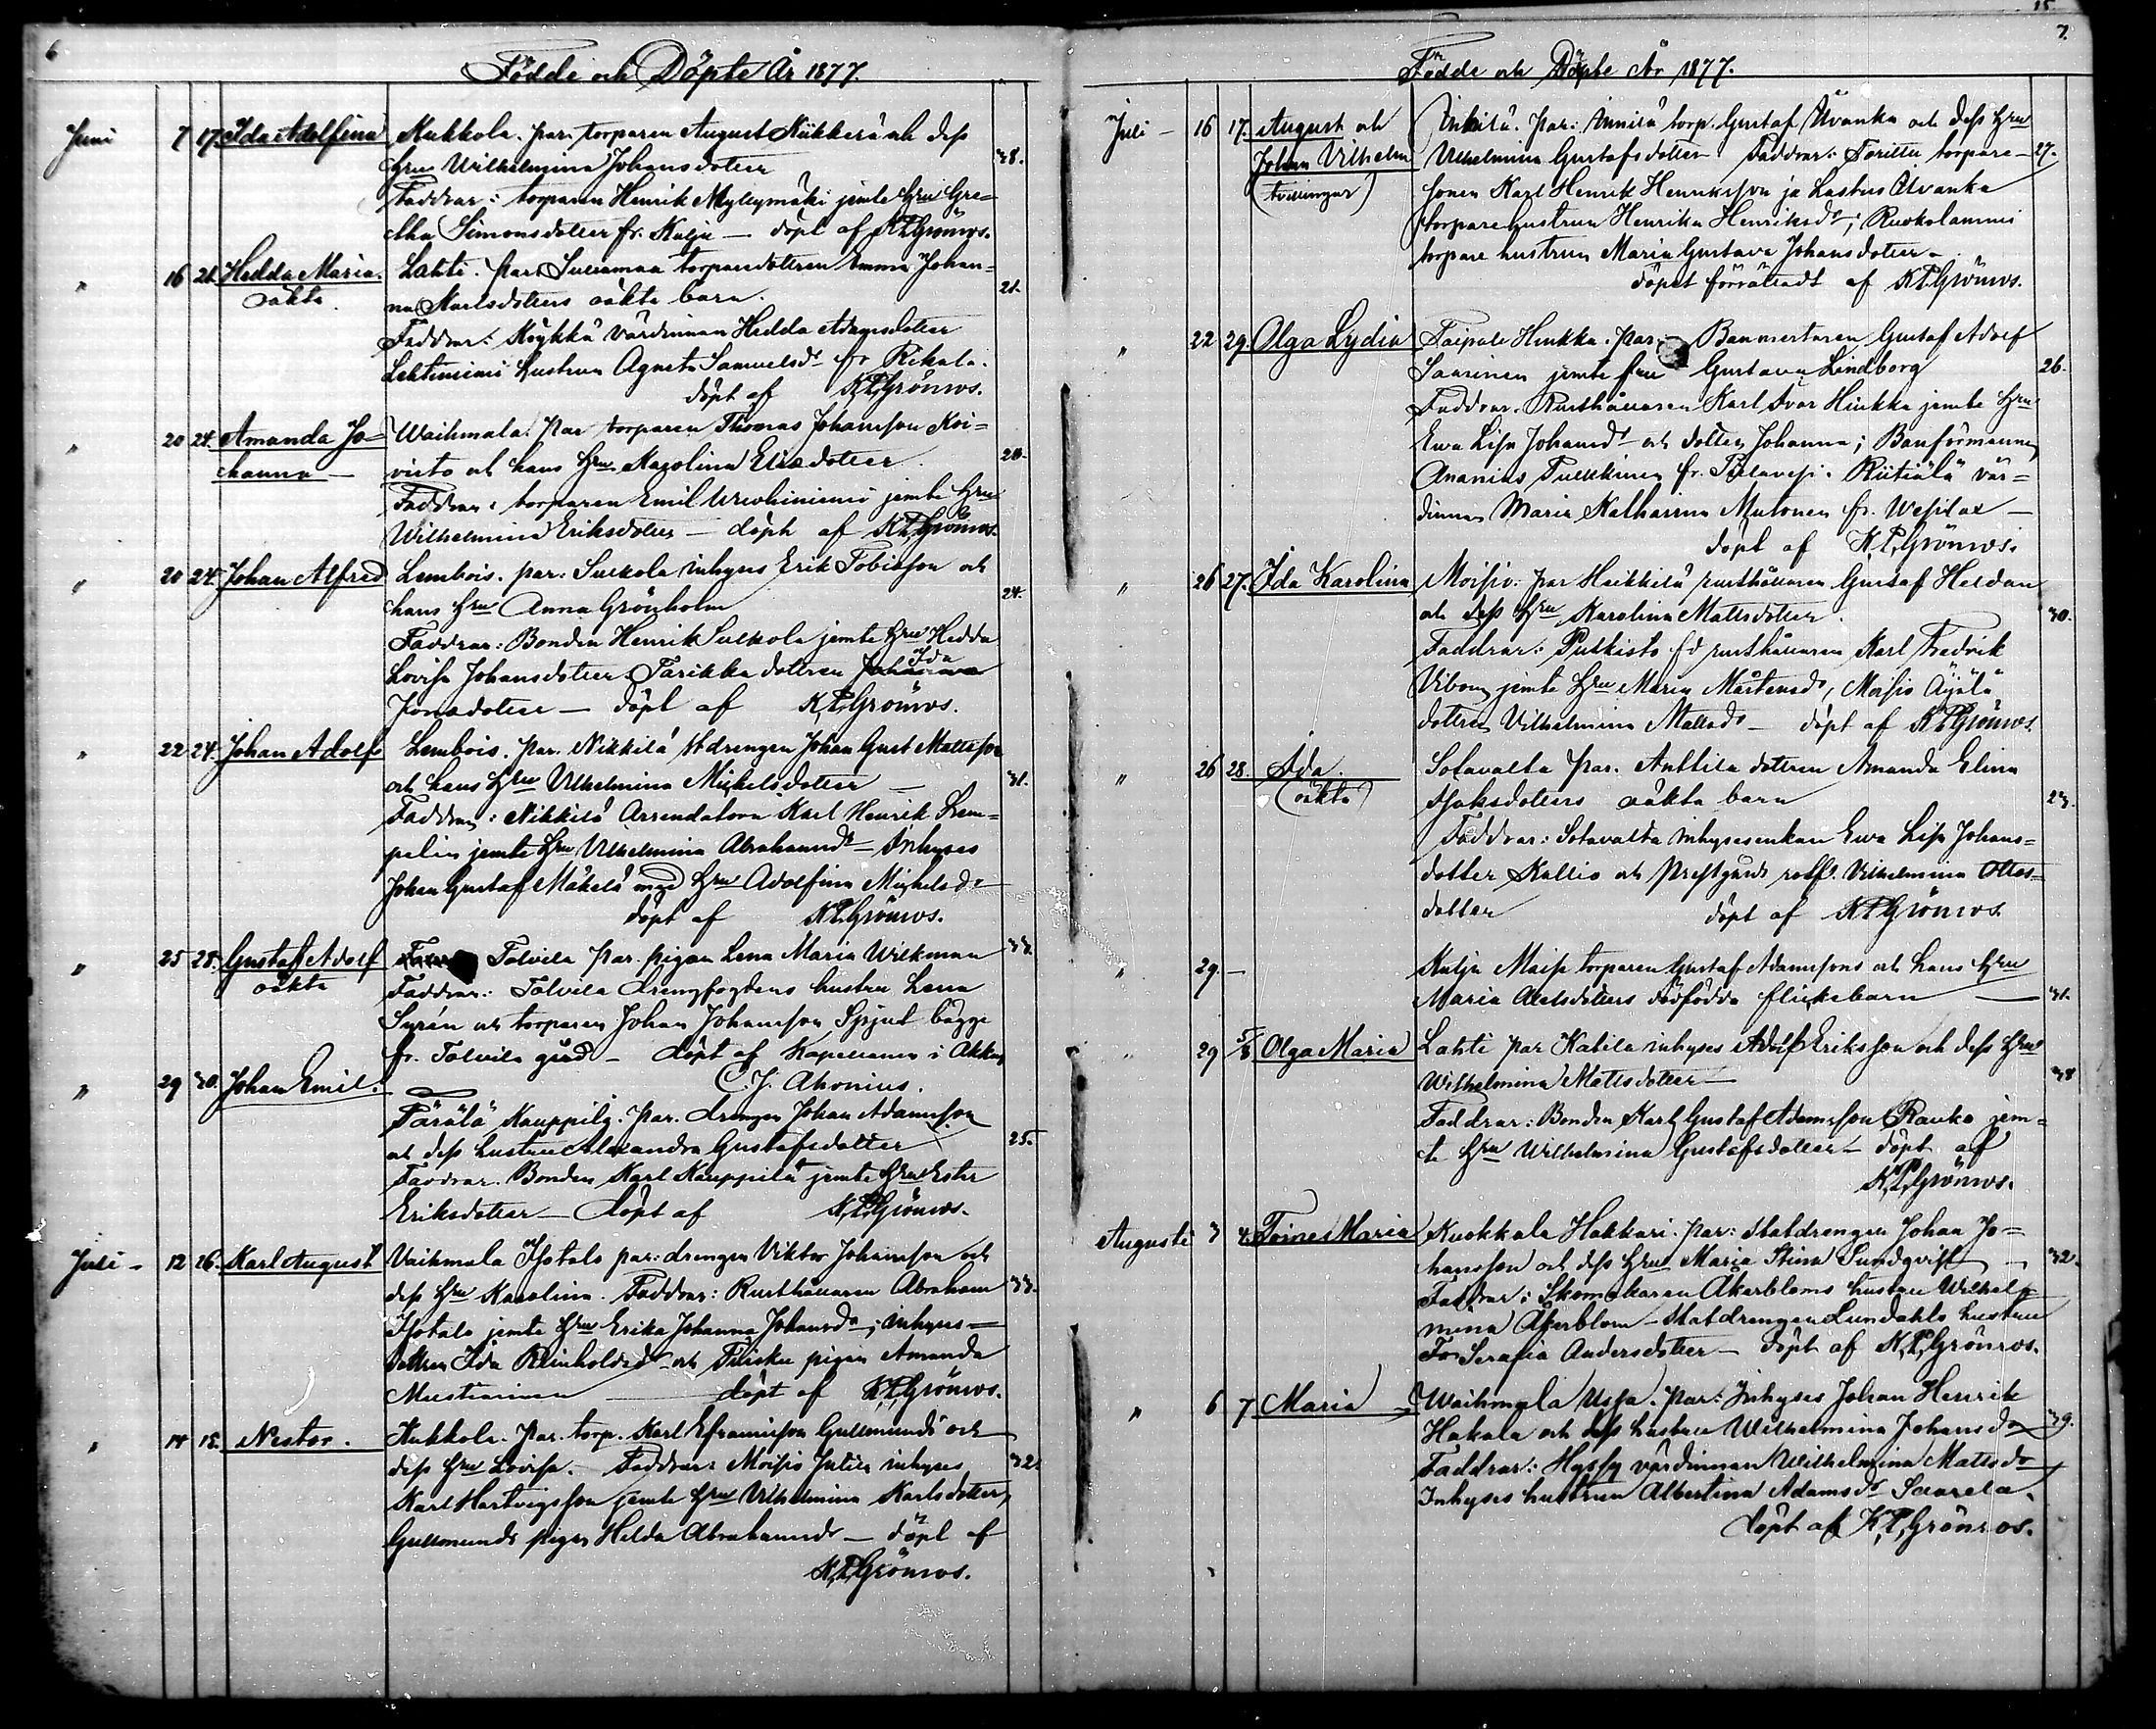 6
Födde och Döpte År 1877.
Juni 7 17. Ida Adolfina Kukkola. par. torparen August Kükkerä och dess
hru Wilhelmina Johansdotter 38.
Faddrar: torparen Henrik Myllymäki jemte hru Gre=
tha Simonsdotter fr. Kulju — döpt af K.P.Grönros.
" 16 21. Hedda Maria. Lahti. par. torparedottren Emma Johan=
oäkta. na Karlsdotters oäkta barn. 21.
Faddrar: Köykkä värdinnan Hedda Adamsdotter
Lehtiniemi hustrun Agneta Samuelsdr fr
döpt af K.P.Grönros.
" 20 24. Amanda Jo= Waihmala. par torparen Thomas Johansson Koi=
hanna — visto och hans hru Karolina Eliædotter. 20.
Faddrar: torparen Emil jemte hru
Wilhelmina Eriksdotter — döpt af K.P.Grönros.
" 20 24. Johan Alfred Lembois. par: Sukkola inhyses Erik Tobiasson och
hans hru Anna Grönholm 24.
Faddrar: Bonden Henrik Sukkola jemte hru Hedda
Lovisa Johansdotter Tarikka dottren Ida
Jonædotter — döpt af K.P.Grönros.
" 22 24. Johan Adolf Lembois. par. Nikkilä stdrengen Johan Gust Mattsson
och hans hru Wilhelmina Michelsdotter — 31.
Faddrar: Nikkilä Arrendatorn Karl Henrik Lem=
pelin jemte hru Wilhelmina Abrahamsdr — Inhyses
Johan Gustaf Mäkelä med hru Adolfina Michelsdr
döpt af K.P.Grönros.
" 25 28. Gustaf Adolf Tolvila par. pigan Lena Maria Wilkman 33.
oäkta Faddrar: Tolvila drengfogdens hustru Lena
Syrén och torparen Johan Johansson Sjijul bägge
fr. Tolvila gård — döpt af Kapellanen i Akkas
C.J. Ahonius.
" 29 30. Johan Emil.
Särälä Kauppila. par. drengen Johan Adamsson
och dess hustru Alexandra Gustafsdotter 25.
Faddrar. Bonden Karl Kauppila jemte hru Ester
Eriksdotter — döpt af K.P.Grönros.
Juli — 12 16. Karl August Vaihmala Isotalo par: drengen Viktor Johansson och
dess hru Karolina. Faddrar: Rusthållaren Abraham 33.
Isotalo jemte hru Erika Johanna Johansdr; inhyses=
dottren Ida Reinholdsdr och pigan Amanda
Mustiainen — döpt af K.P.Grönros.
" 14 15. Nestor. Kukkola. par. torp. Karl Efraimsson Gullmunds och
dess hru Lovisa. Faddrar: Moisio Jutila inhyses 32.
Karl Hartvigsson jemte hru Wilhelmina Karlsdotter,
Gullmunds pigan Hilda Abrahamsdr — döpt af
K.P.Grönros.
15.
7.
Födde och Döpte År 1877.
Juli — 16 17. August och par: torp. Gustaf Ålvanka och dess hru
Johan Vilhelm Wilhelmina Gustafsdotter Faddrar: torpare= 27.
(tvillingar) sonen Karl Henrik Henriksson Ålvanka
torparehustrun Henrika Henriksdr; Ruokolammi
torpare hustrun Maria Gustava Johansdotter —
döpt förrättadt af K.P.Grönros.
" 22 29. Olga Lydia Taipale Hinkka. par: Banmestaren Gustaf Adolf
Saarinen jemte fru Gustava Lindborg 26.
Faddrar. Rusthållaren Karl Ivar Hinkka jemte hru
Ewa Lisa Johansdr och dotter Johanna; Banförmannen
Ananias Tulkkinen fr. Riitiälä vär=
dinnan Maria Katharina Mutonen fr. Wesilax —
döpt af K.P.Grönros.
" 26 27. Ida Karolina Moisio. par Heikkilä rusthållaren Gustaf Heldan
och dess hru Karolina Mattsdotter. 30.
Faddrar: Putkisto fd rusthållaren Karl Fredrik
Vibom jemte hru Maria Mårtensdr, Moisio Äijälä
dottren Vilhelmina Mattsdr — döpt af K.P.Grönros.
" 26 28. Ida. Sotavalta par. Anttila dottren Amanda Elina
(oäkta) Isaksdotters oäkta barn 23.
Faddrar: Sotavalta inhysesenkan Ewa Lisa Johans=
dotter Kallio och Prestgårds Wilhelmina Ottos=
dotter döpt af K.P.Grönros.
" 29. — Kulju Maisi torparen Gustaf Adamssons och hans hru
Maria Axelsdotters dödfödda flickebarn — 31.
" 29 5/8 Olga Maria Lahti par Katila inhyses Adolf Eriksson och dess hru
Wilhelmina Mattsdotter — 38
Faddrar: Bonden Karl Gustaf Adamsson Rauko jem=
te hru Wilhelmina Gustafsdotter — döpt af
K.P.Grönros.
Augusti 3 4. Toine Maria Kuokkala Hakkari. par: statdrengen Johan Jo=
hansson och dess hru Maria Stina Sundqvist — 32.
Faddrar: Skomakaren Åkerbloms hustru Wilhel=
mina Åkerblom — statdrengen Lundahls hustru
Serafia Andersdotter — döpt af K.P.Grönros.
" 6 7 Maria Waihmala Ussa. par: Inhyses Johan Henrik
Hakala och dess hustru Wilhelmina Johansdr 39.
Faddrar: Hyssy värdinnan Wilhelmina Mattsdr
Inhyses hustrun Albertina Adamsdr Saarela.
döpt af K.P.Grönros.